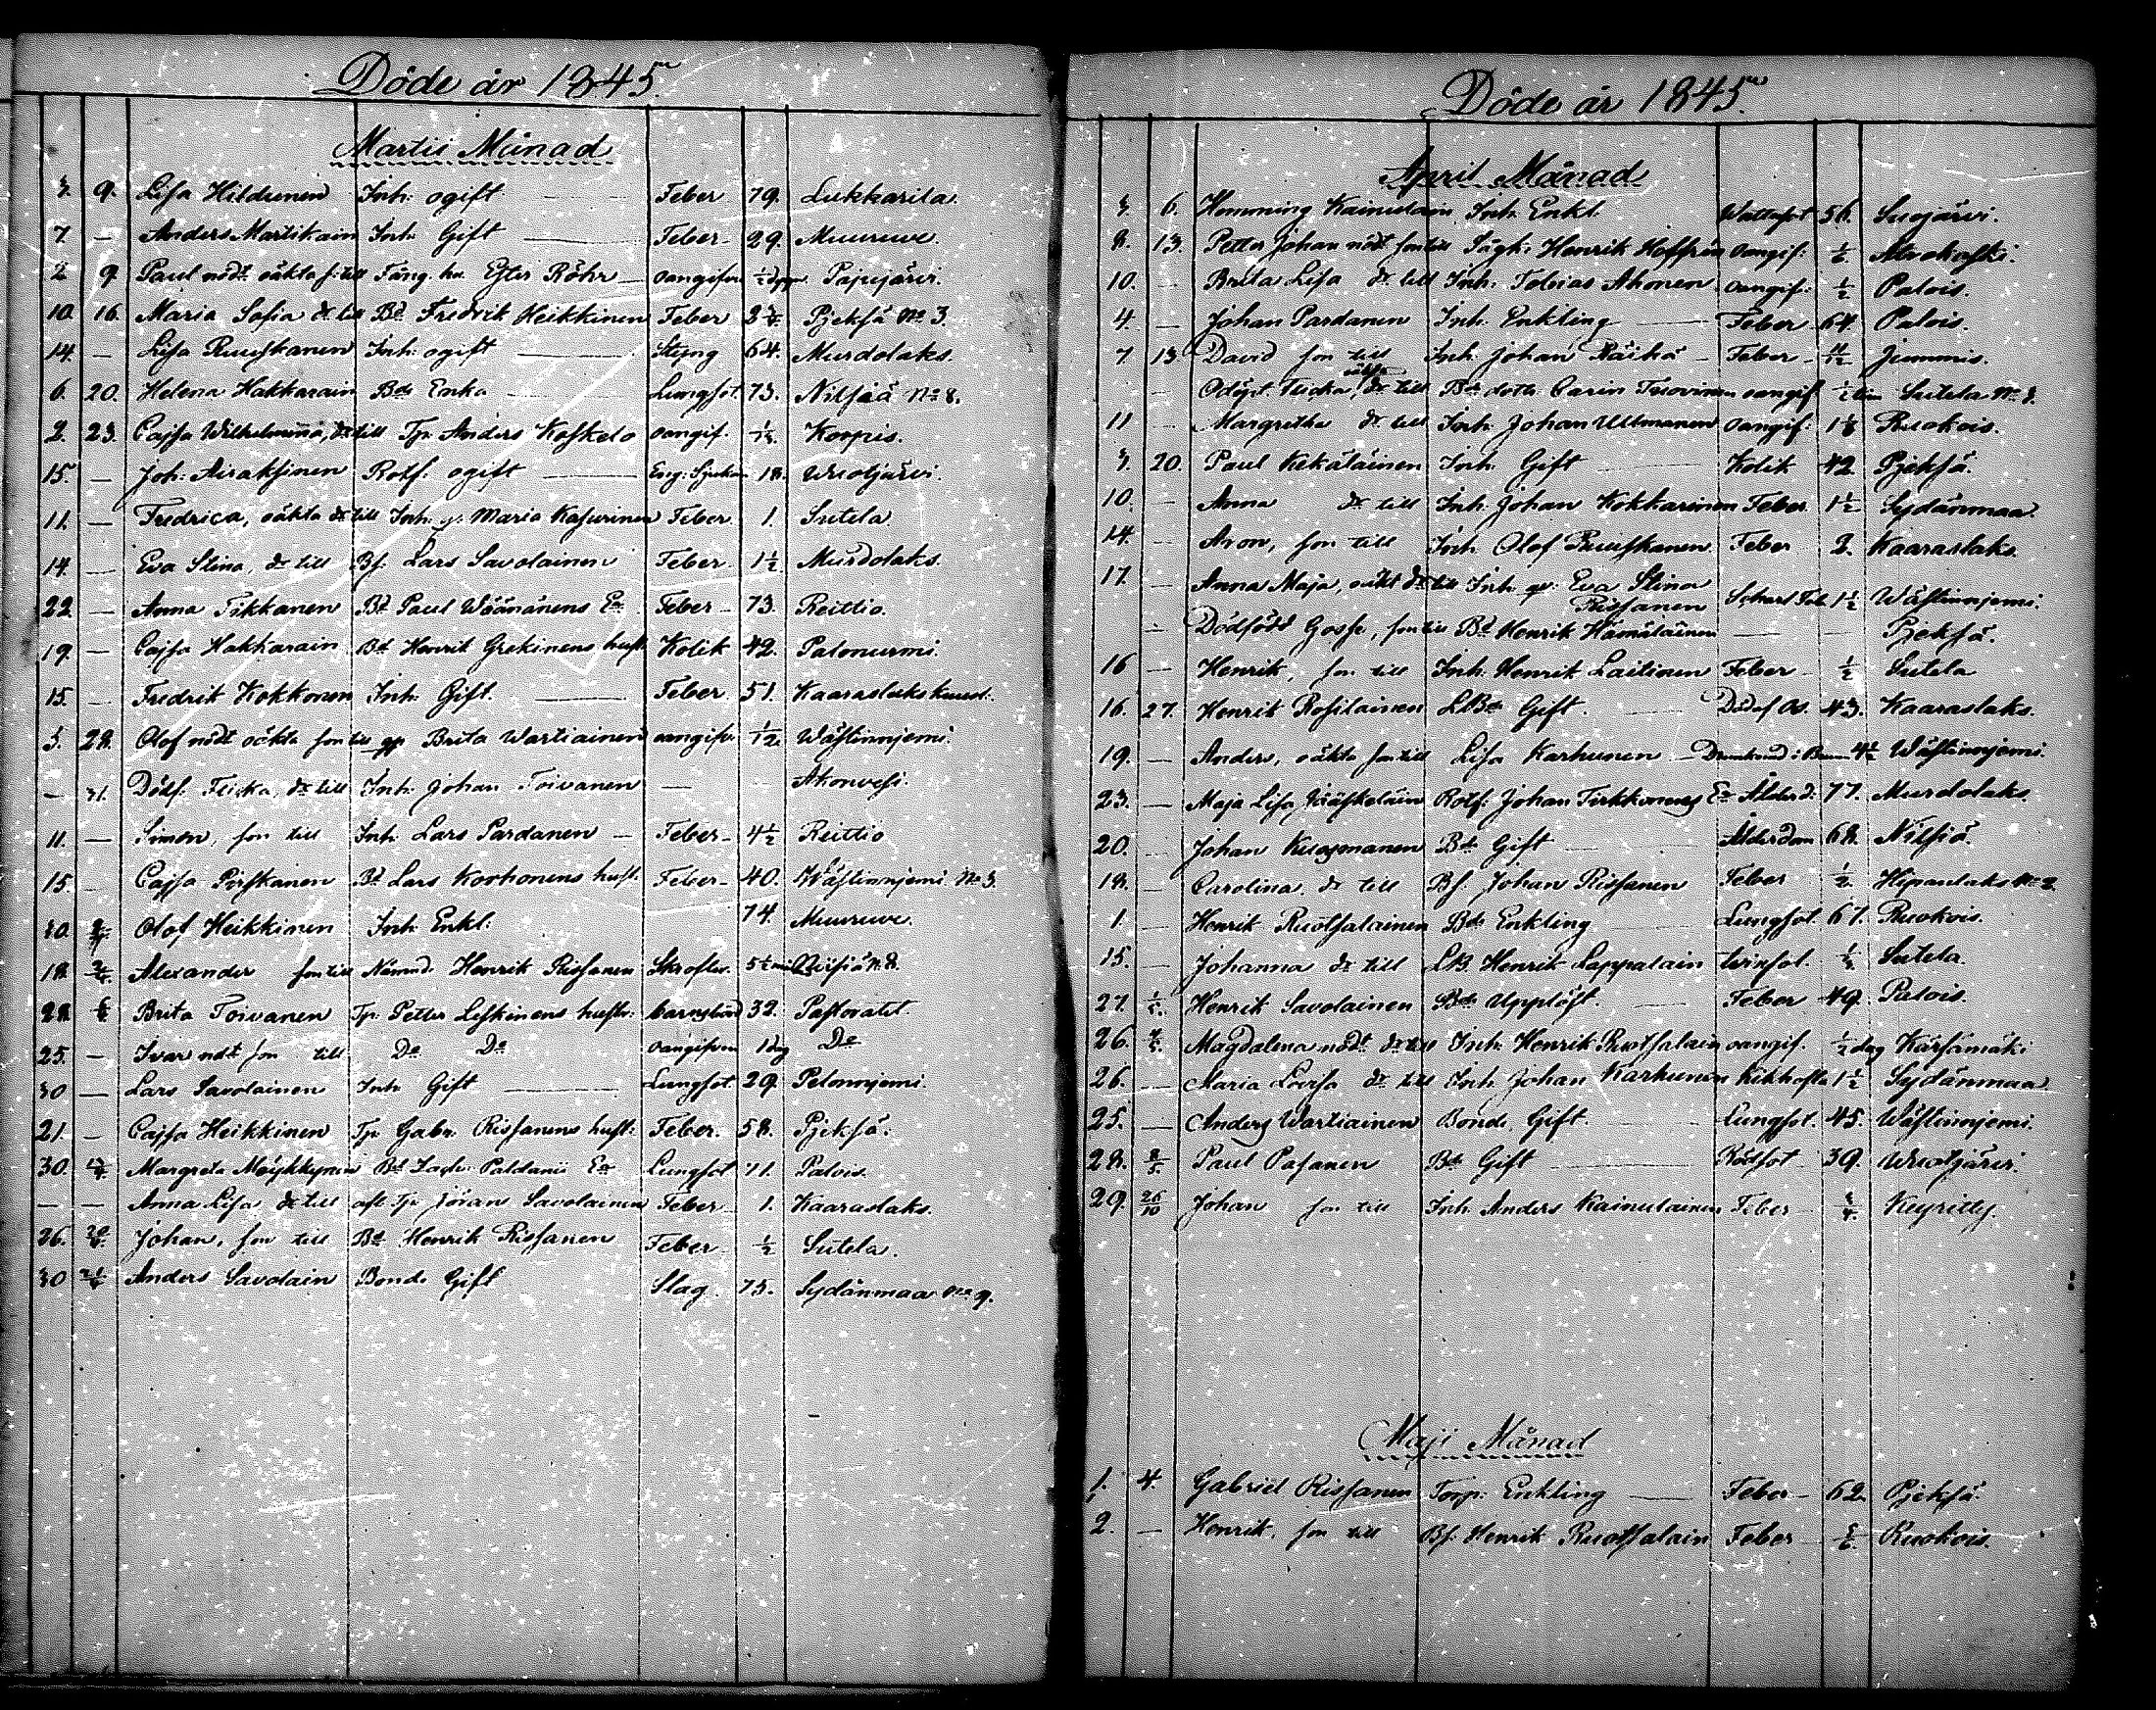 Döde år 1845.
Martii Månad
3. 9. Lisa Hildunen Inh: ogift Feber 79. Lukkarila
7. — Anders Martikain Inh: Gift Feber 29. Muuruwe.
2 9 Paul nödt: oäkta s: till Fäng. hu. Efter Röhr oangifven ½ Pajujärvi.
10. 16. Maria Sofia dr till Bd Fredrik Heikkinen Feber Pjeksä No 3.
14. — Lisa Ruuskanen Inh: ogift Styng 64. Murdolaks.
6. 20. Helena Hakkarain Bde Enka Lungsot. 73. Nilsiä No 8.
2. 23. Cajsa Wilhelmina, dr till Tp. Anders Koskelo oangif. Korpis.
15. — Joh: Airaksinen Rotf. ogift 18. Wuotjärvi.
11. — Fredrica, oäkta dr till Inh: p. Maria Kasurinen Feber 1. Sutela
14. — Eva Stina, dr till Bf. Lars Savolainen Feber 1½ Murdolaks.
22 — Anna Tikkanen Bd Paul Wäänänens Ea Feber 73. Reittio.
19. — Cajsa Hakkarain Bd Henrik Grekinens hust. Kolik 42. Palonurmi.
15. — Fredrik Kokkonen Inh: Gift. Feber 51. Kaaraslaks
5. 28. Olof nödt oäkta son till Brita Wartiainen oangifv. Wästinnjemi.
— 31. Dödf. Flicka, dr till Inh: Johan Toivanen — Akonvesi.
11. — Simon, son till Inh: Lars Pardanen — Feber 4½ Reittio
15. — Cajsa Pirskanen Bd Lars Korhonens hust. Feber 40. Wästinnjemi No 3.
30. Olof Heikkinen Inh: Enkl: 74. Muuruwe.
18. Alexander son till Nämnd. Henrik Rissanen Skrofler 5½ Nilsiä N. 8.
28. Brita Toivanen Tp: Petter Leskinens hustr: barnsbörd 32. Pastoratet.
25. — Ivar ndt son till Do Do oangifven 1 dag Do
30 — Lars Savolainen Inh Gift Lungsot 29. Pelonnjemi.
21. — Cajsa Heikkinen Tp: Gabr. Rissanens hust: Feber. 58. Pjeksä.
30. Margreta Möykkynen Bd Zachr: Paldanii Ea Lungsot 71. Palois.
— — Anna Lisa dr till afl. Tp: Jöran Savolainen Feber 1. Kaaraslaks.
26. Johan, son till Bd Henrik Rissanen Feber ½ Sutela.
30 Anders Savolain Bonde Gift Slag. 75. Sydänmaa No 9.
Döde år 1845.
April Månad
3. 6. Hemming Kainulain Inh: Enkl. Wattusot 56. Suojärvi.
8. 13. Petter Johan nödt son till Sågk: Henrik Hoffrén oangif: ½ Alvokoski.
10. — Brita Lisa dr till Inh: Tobias Ahonen oangif: ½ Palois.
4. — Johan Pardanen Inh: Enkling Feber 64. Palois.
7 13 David son till Inh: Johan Räihä Feber 11/12 Jummis.
— Odöpt Flicka, oäkta dr till Bde dottr. Carin Tuovinen oangif ½ tim Sutela No 3.
11 — Margretha dr till Inh: Johan Ullmanen oangif: Ruokois.
3. 20. Paul Kekäläinen Inh: Gift Kolik 42 Pjeksä.
10. — Anna dr till Inh: Johan Kokkarinen Feber 1½ Sydänmaa.
14. — Aron, son till Inh: Olof Ruuskanen Feber 2. Kaaraslaks.
17. — Anna Maja, oäkt dr till Inh: Eva Stina Rissanen Scharl. Feb. 1½ Wästinnjemi.
— Dödfödd Gosse, son till Bd Henrik Hämäläinen — — Pjeksä.
16 — Henrik, son till Inh: Henrik Laitinen Feber ½ Sutela
16. 27. Henrik Rosilainen LBde Gift. 43. Kaaraslaks.
19. — Anders, oäkta son till Lisa Karhunen Drunknad i Brunn 4½ Wästinnjemi.
23. — Maja Lisa Wäskeläin Rotf: Johan Tirkkonens Ea Ålderd: 77. Murdolaks.
20. — Johan Kuosmanen Bde Gift Ålderdom 68. Nilsiä.
18. — Carolina, dr till Bf. Johan Rissanen Feber ½ Hipanlaks No 2
1. — Henrik Ruotsalainen Bde Enkling Lungsot 67. Ruokois.
15. — Johanna dr till LB. Henrik Lappalain Sutela.
27. Henrik Savolainen Bde Upplöst. Feber 49. Palois.
26. Magdalena nödt dr till Inh: Henrik Ruotsalain oangif. ½ dag Kärsämäki
26. — Maria Lovisa dr till Inh: Johan Karhunen Kikhosta 1½ Sydänmaa
25. — Anders Wartiainen Bonde, Gift. Lungsot. 45. Wästinnjemi.
28. 8/5. Paul Pasanen Bde Gift Rödsot 39. Wuotjärvi.
29. 26/10 Johan son till Inh: Anders Kainulainen Feber Keyritty.
Maji Månad
1. 4. Gabriel Rissanen Torp: Enkling Feber 62. Pjeksä.
2. — Henrik, son till Bf. Henrik Ruotsalain Feber Ruokois.